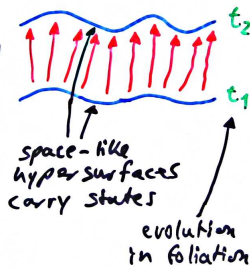 t₂
t₁
space-like
hypersurfaces
carry states
evolution
in foliation